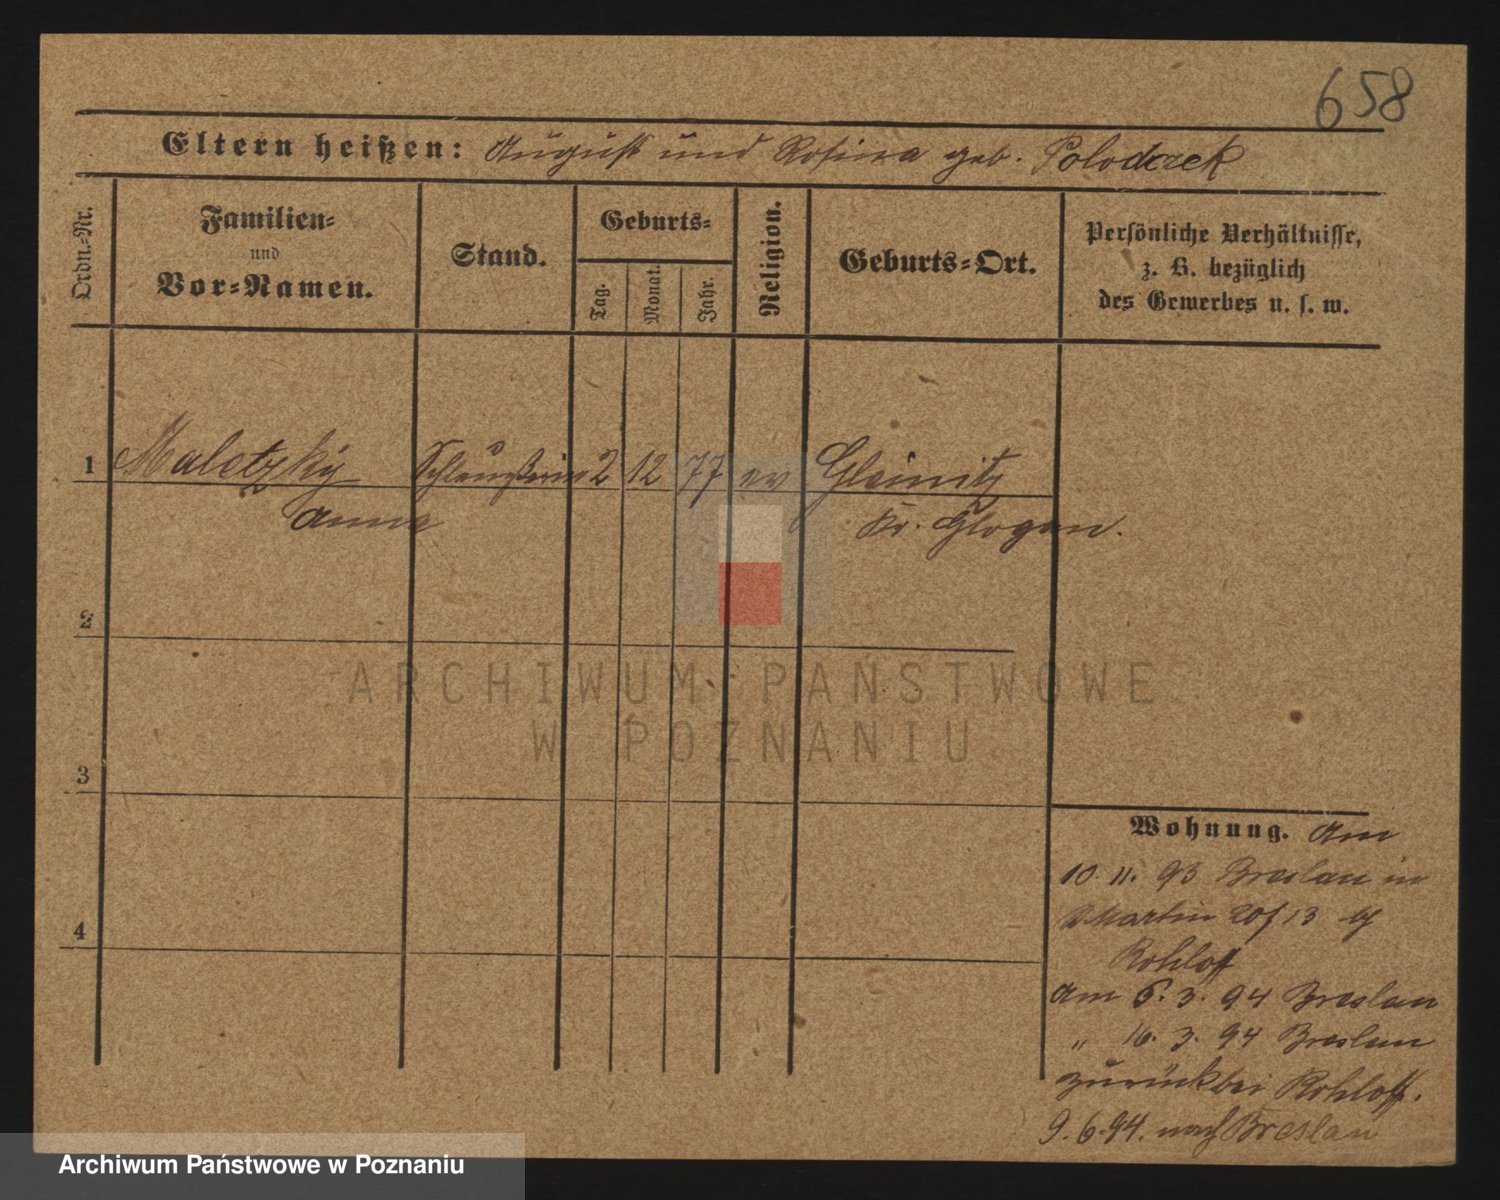 658
Eltern heißen: August und Rosina geb. Poloderek
Ordn.-Nr.
Familien-
und
Vor-Namen.
Stand.
Geburts-
Tag.
Monat.
Jahr.
Religion.
Geburts-Ort.
Persönliche Verhältnisse,
z. B. bezüglich
des Gewerbes u. s. w.
1 Maletzky 2 12 77 ev Gleinitz
Anna Kr. Glogau.
2
3
4
Wohnung. Am
10. 11. 93 Breslau in
Martin 20 / 13 bei
Rohloff
Am 5. 3. 94 Breslau
„ 16. 3. 94 Breslau
zurück bei Rohloff.
9. 6. 94. nach Breslau
ARCHIWUM PAŃSTWOWE
W POZNANIU
Archiwum Państwowe w Poznaniu